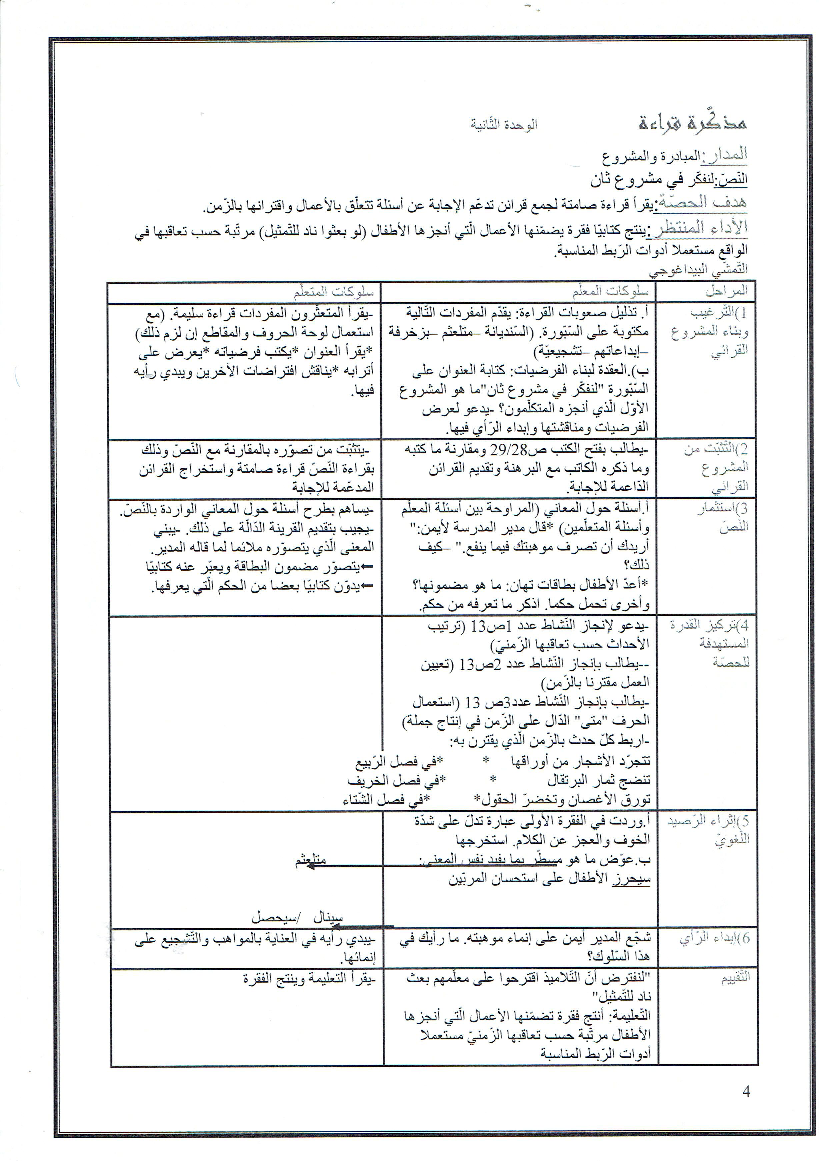 مذكّرة قراءة الوحدة الثّانية
المدار: المبادرة والمشروع
النّصّ: لنفكّر في مشروع ثان
هدف الحصّة: يقرأ قراءة صامتة لجمع قرائن تدعّم الإجابة عن أسئلة تتعلّق بالأعمال واقترانها بالزّمن.
الأداء المنتظر: ينتج كتابيّا فقرة يضمّنها الأعمال الّتي أنجزها الأطفال (لو بعثوا ناد للتّمثيل) مرتّبة حسب تعاقبها في
الواقع مستعملا أدوات الرّبط المناسبة.
التّمشّي البيداغوجي
المراحل سلوكات المعلّم سلوكات المتعلّم
1)التّرغيب
وبناء المشروع
القرائي
أ. تذليل صعوبات القراءة: يقدّم المفردات التّالية
مكتوبة على السّبّورة. (السّنديانة –متلعثم –بزخرفة
–إبداعاتهم –تشجيعيّة)
ب).العقدة لبناء الفرضيات: كتابة العنوان على
السّبّورة "لنفكّر في مشروع ثان"ما هو المشروع
الأوّل الّذي أنجزه المتكلّمون؟ -يدعو لعرض
الفرضيات ومناقشتها وإبداء الرّأي فيها.
-يقرأ المتعثّرون المفردات قراءة سليمة. (مع
استعمال لوحة الحروف والمقاطع إن لزم ذلك)
*يقرأ العنوان *يكتب فرضياته *يعرض على
أترابه *يناقش افتراضات الآخرين ويبدي رأيه
فيها.
2)التّثبّت من
المشروع
القرائي
-يطالب بفتح الكتب ص28/29 ومقارنة ما كتبه
وما ذكره الكاتب مع البرهنة وتقديم القرائن
الدّاعمة للإجابة.
-يتثبّت من تصوّره بالمقارنة مع النّصّ وذلك
بقراءة النّصّ قراءة صامتة واستخراج القرائن
المدعّمة للإجابة
3)استثمار
النّصّ
أ.أسئلة حول المعاني (المراوحة بين أسئلة المعلّم
وأسئلة المتعلّمين) *قال مدير المدرسة لأيمن:"
أريدك أن تصرف موهبتك فيما ينفع." –كيف
ذلك؟
*أعدّ الأطفال بطاقات تهان: ما هو مضمونها؟
وأخرى تحمل حكما. اذكر ما تعرفه من حكم.
-يساهم بطرح أسئلة حول المعاني الواردة بالنّصّ.
-يجيب بتقديم القرينة الدّالّة على ذلك. -يبني
المعنى الّذي يتصوّره ملائما لما قاله المدير.
←يتصوّر مضمون البطاقة ويعبّر عنه كتابيّا
←يدوّن كتابيّا بعضا من الحكم الّتي يعرفها.
4)تركيز القدرة
المستهدفة
للحصّة
-يدعو لإنجاز النّشاط عدد 1ص13 (ترتيب
الأحداث حسب تعاقبها الزّمنيّ)
--يطالب بإنجاز النّشاط عدد 2ص13 (تعيين
العمل مقترنا بالزّمن)
-يطالب بإنجاز النّشاط عدد3ص 13 (استعمال
الحرف "متى" الدّال على الزّمن في إنتاج جملة)
-اربط كلّ حدث بالزّمن الّذي يقترن به:
تتجرّد الأشجار من أوراقها * *في فصل الرّبيع
تنضج ثمار البرتقال * *في فصل الخريف
تورق الأغصان وتخضرّ الحقول* *في فصل الشّتاء
5)إثراء الرّصيد
اللّغويّ
أ.وردت في الفقرة الأولى عبارة تدلّ على شدّة
الخوف والعجز عن الكلام. استخرجها
ب.عوّض ما هو مسطّر بما يفيد نفس المعنى:
سيحرز الأطفال على استحسان المربّين
متلعثم
سينال /سيحصل
6)إبداء الرّأي
شجّع المدير أيمن على إنماء موهبته. ما رأيك في
هذا السّلوك؟
-يبدي رأيه في العناية بالمواهب والتّشجيع على
إنمائها.
التّقييم
"لنفترض أنّ التّلاميذ اقترحوا على معلّمهم بعث
ناد للتّمثيل"
التّعليمة: أنتج فقرة تضمّنها الأعمال الّتي أنجزها
الأطفال مرتّبة حسب تعاقبها الزّمنيّ مستعملا
أدوات الرّبط المناسبة
-يقرأ التعليمة وينتج الفقرة
4